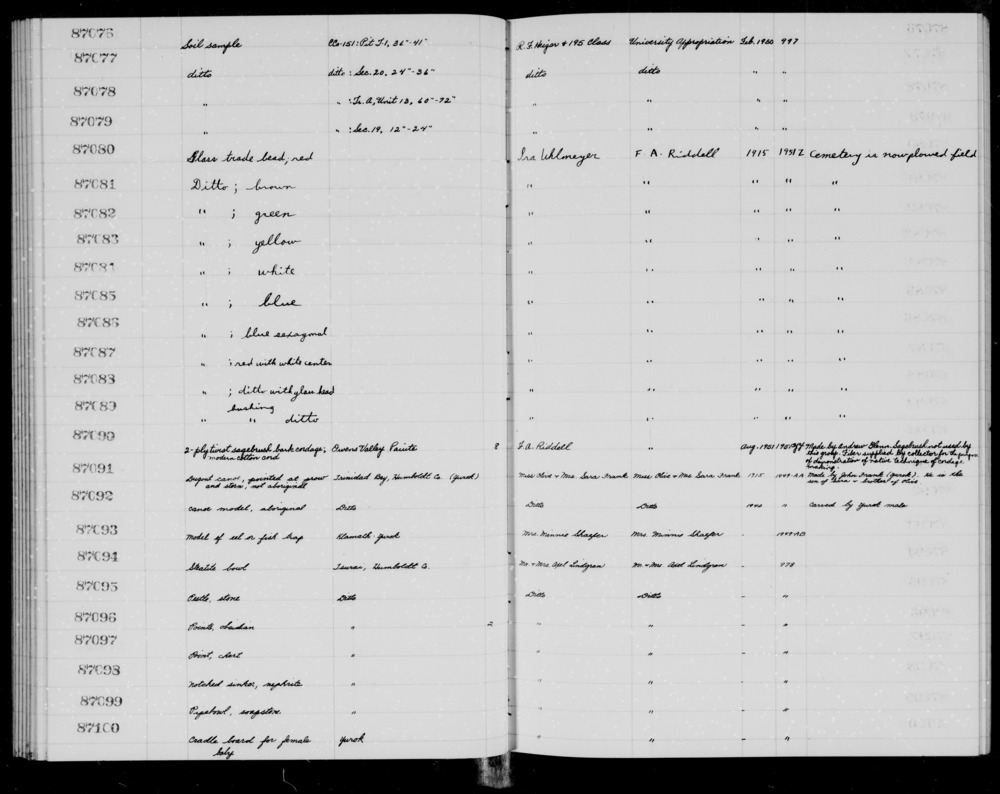 87076 Soil sample CCo-151: Pit J-1, 36"-41" R. F. Heizer + 195 Class University Appropriation Feb. 1950 997
87077 ditto ditto : Sec. 20, 24"-36" ditto ditto " "
87078 " " : Tr. A, Unit 13, 60"-72" " " " "
87079 " " : Sec. 19, 12"-24" " " " "
87080 Glass trade bead, red Ira Uhlmeyer F. A. Riddell 1915 1951 Z Cemetery is now plowed field
87081 Ditto ; brown " " " " "
87082 " ; green " " " " "
87083 " ; yellow " " " " "
87084 " ; white " " " " "
87085 " ; blue " " " " "
87086 " ; blue sexagonal " " " " "
87087 " ; red with white center " " " " "
87088 " ; ditto with glass bead " " " " "
bushing
87089 " " ditto " " " " "
87090 2-ply twist sagebrush bark cordage; Owens Valley Paiute 8 F. A. Riddell " Aug. 1951 1951 Made by Andrew Glenn. Sagebrush not used by
modern cotton cord this group. Fiber supplied by collector for the purpose
of demonstration of native technique of cordage
making.
87091 Dugout canoe, pointed at prow Trinidad Bay, Humboldt Co. (Yurok) Miss Olive + Mrs. Sara Frank Miss Olive + Mrs. Sara Frank 1915 1949 AA Made by John Frank (Yurok). He is the
and stern, not aboriginal son of Sara + brother of Olive
87092 canoe model, aboriginal Ditto Ditto Ditto 1940 " Carved by Yurok male
87093 Model of eel or fish trap Klamath Yurok Mrs. Minnie Shaffer Mrs. Minnie Shaffer - 1949 AB
87094 Steatite bowl Tsurai, Humboldt Co. Mr. + Mrs. Axel Lindgren Mr. + Mrs. Axel Lindgren - 978
87095 Pestle, stone Ditto Ditto Ditto - "
87096 Points, obsidian " 2 " " - "
87097 Point, chert " " " - "
87098 Notched sinker, nephrite " " " - "
87099 Pipebowl, soapstone " " " - "
87100 Cradle board for female Yurok " - "
baby